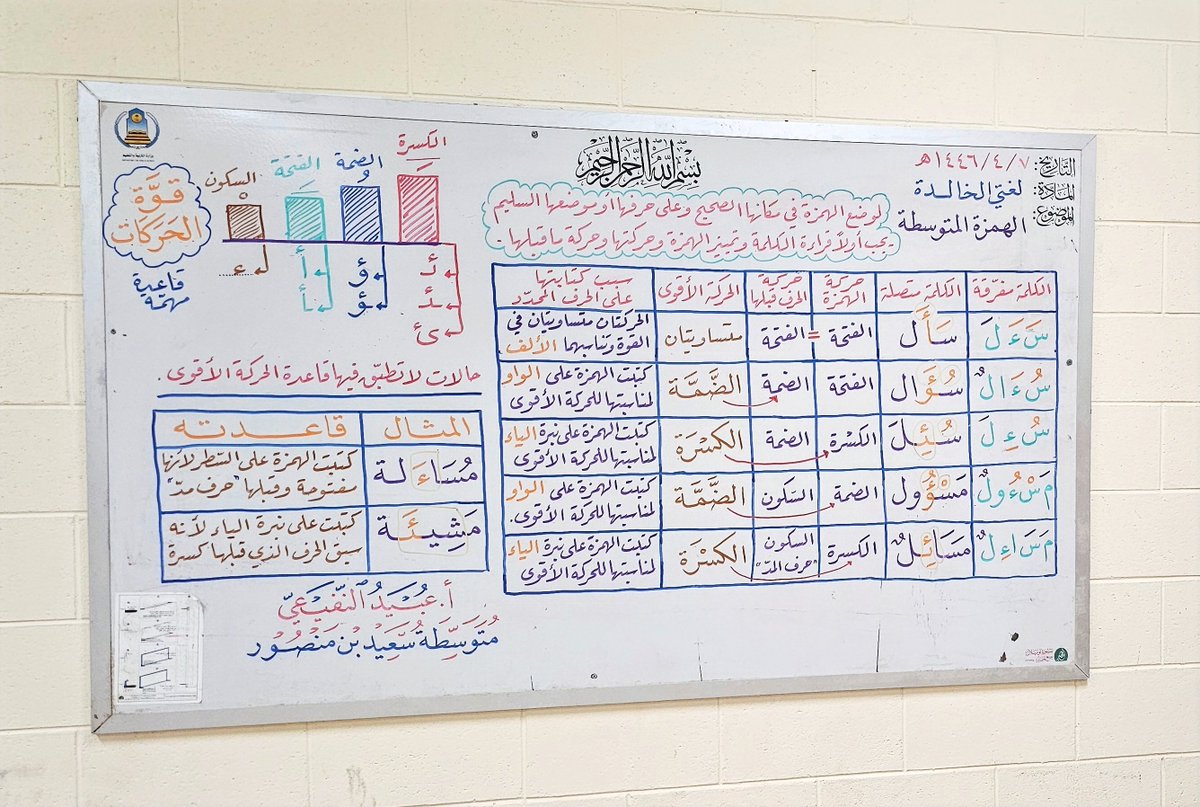 بِسْمِ اللهِ الرَّحْمنِ الرَّحِيمِ
التاريخ: ١٤٤٦/٤/٧هـ
المادة: لغتي الخالدة
الموضوع: الهمزة المتوسطة
لوضع الهمزة في مكانها الصحيح وعلى حرفها أو موضعها السليم
يجب أولاً قراءة الكلمة وتمييز الهمزة وحركتها وحركة ما قبلها.
الكلمة مفرّقة الكلمة متصلة حركة الهمزة حركة الحرف قبلها الحركة الأقوى سبب كتابتها على الحرف المحدّد
سَ ءَ لَ سَأَل الفتحة = الفتحة متساويتان الحركتان متساويتان في القوة وتناسبهما الألف
سُ ءَ الٌ سُؤَال الفتحة الضمة الضَّمَّة كتبت الهمزة على الواو لمناسبتها للحركة الأقوى
سُ ءِ لَ سُئِلَ الكسْرة الضمة الكسْرَة كتبت الهمزة على نبرة الياء لمناسبتها للحركة الأقوى
مَ سْ ءُ ولٌ مَسْؤُول الضمة السّكون الضَّمَّة كتبت الهمزة على الواو لمناسبتها للحركة الأقوى.
مَ سَ ا ءِ لٌ مَسَائِلٌ الكسرة السكون "حرف المدّ" الكسْرَة كتبت الهمزة على نبرة الياء لمناسبتها للحركة الأقوى
قوَّة الحَركَات
قاعدة مهمّة
الكسرة الضمة الفتحة السكون
ئـ ؤ أ ء
ـئـ ـؤ ـأ
ئ
حالات لا تطبّق فيها قاعدة الحركة الأقوى.
المثال قاعدته
مُسَاءَلة كتبت الهمزة على السّطر لأنها مفتوحة وقبلها "حرف مدّ"
مَشِيئَة كتبت على نبرة الياء لأنه سبق الحرف الذي قبلها كسرة
أ. عُبَيدُ النّفَيعيّ
مُتَوَسِّطَة سَعِيد بْن مَنْصُور